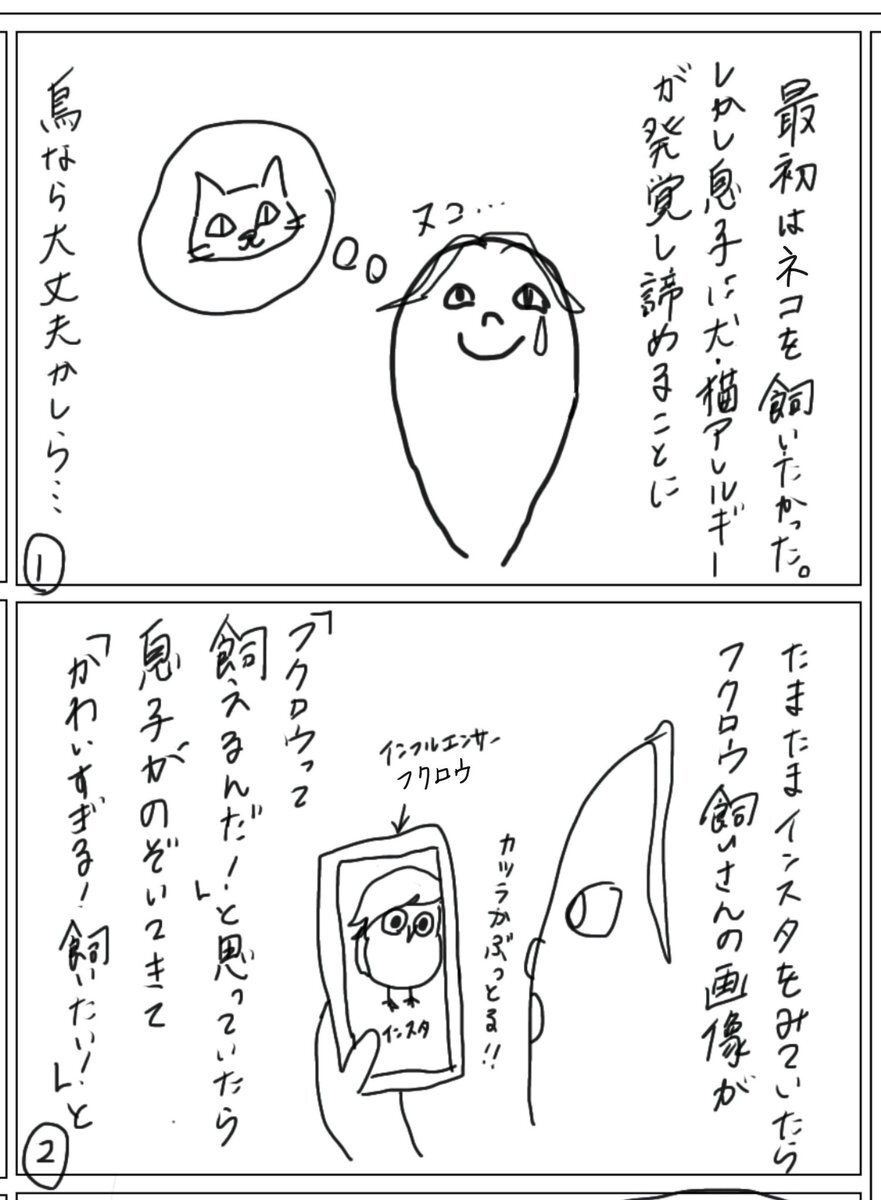 最初はネコを飼いたかった。
しかし息子に犬・猫アレルギー
が発覚し諦めることに
ヌコ…
鳥なら大丈夫かしら…
1
たまたまインスタをみていたら
フクロウ飼いさんの画像が
カツラかぶっとる!!
インフルエンサー
フクロウ
インスタ
「フクロウって
飼えるんだ!」と思っていたら
息子がのぞいてきて
「かわいすぎる!飼いたい!」と
2